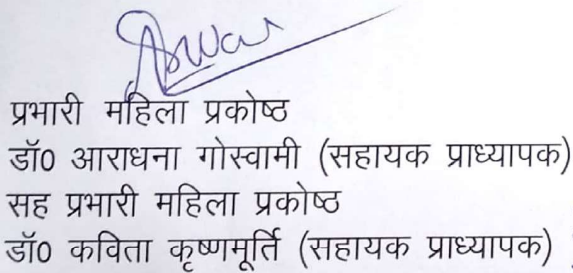 प्रभारी महिला प्रकोष्ठ
डॉ0 आराधना गोस्वामी (सहायक प्राध्यापक)
सह प्रभारी महिला प्रकोष्ठ
डॉ0 कविता कृष्णमूर्ति (सहायक प्राध्यापक)